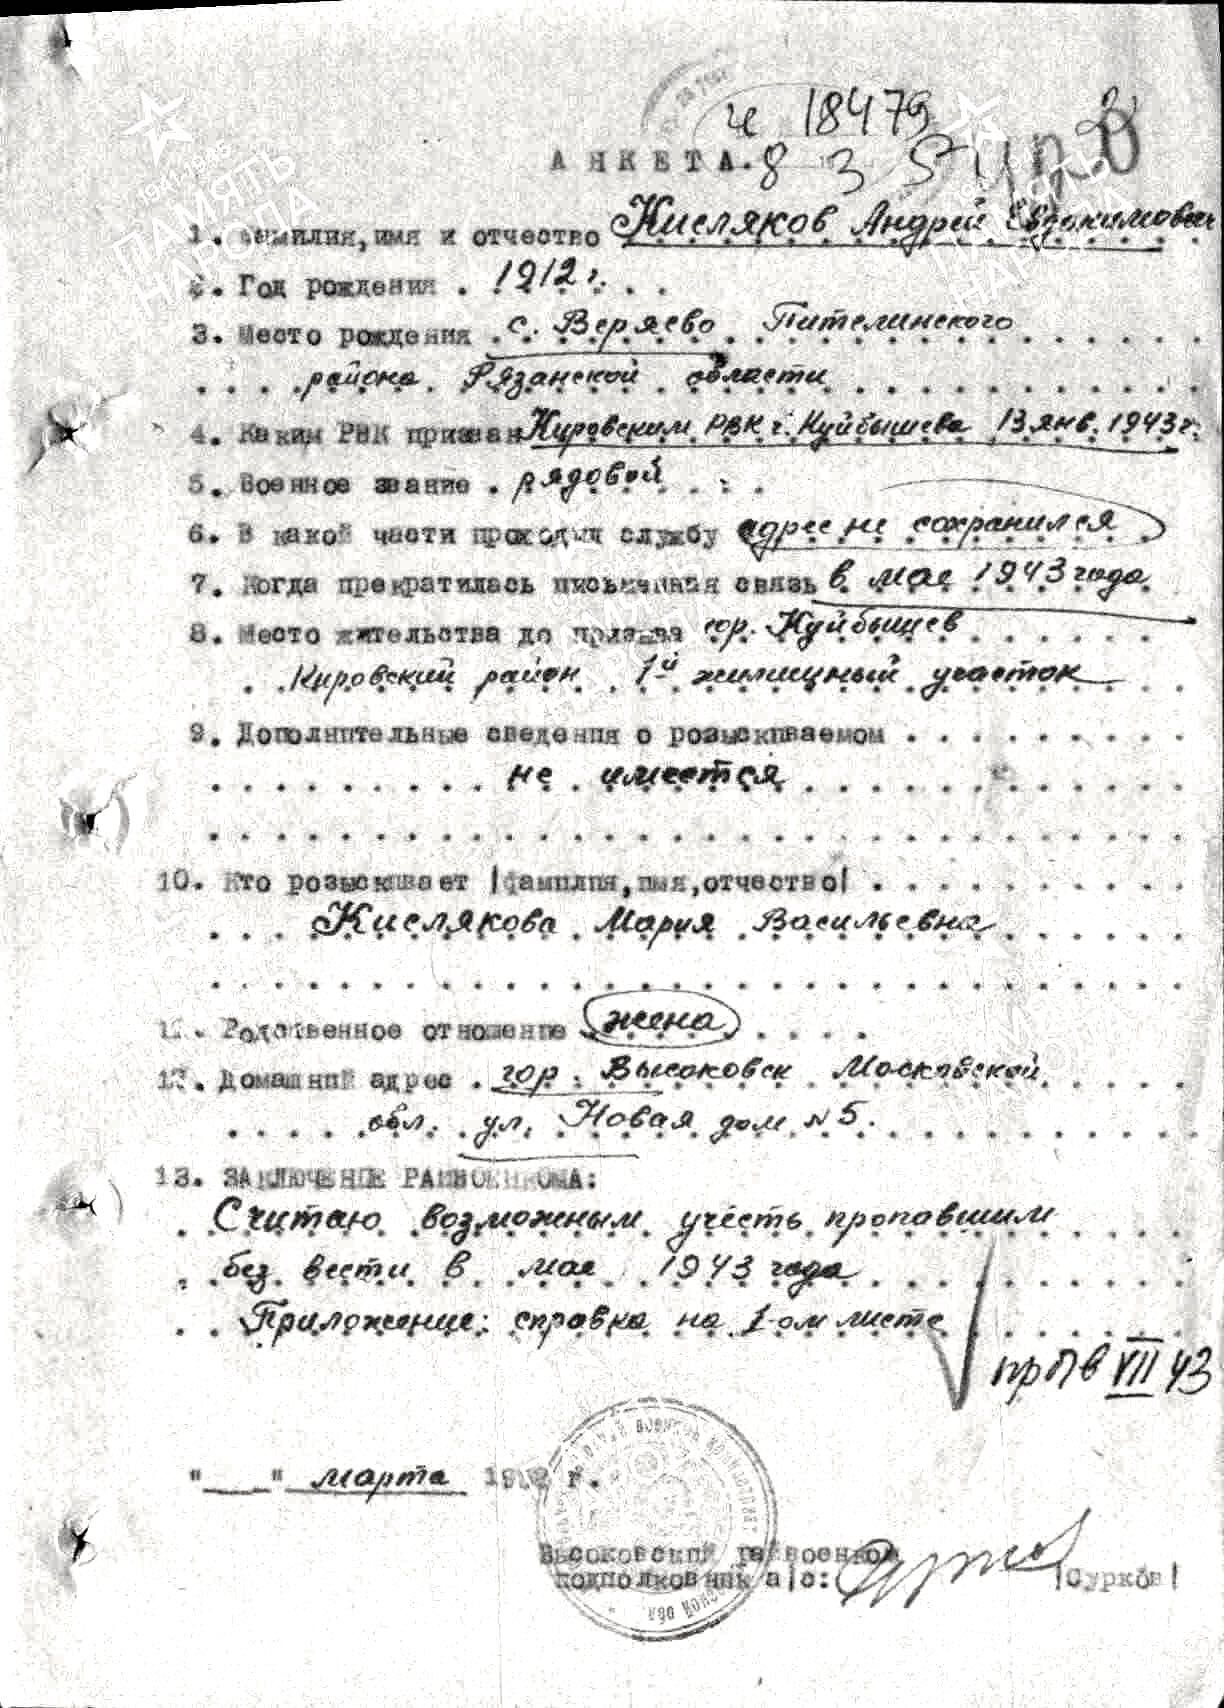 ч 18479
АНКЕТА. 8 3
1. Фамилия, имя и отчество Кисляков Андрей Евдокимович
2. Год рождения . 1912 г. . .
3. Место рождения с. Веряево Пителинского
района Рязанской области
4. Каким РВК призван Кировским РВК г. Куйбышева 13 янв. 1943 г.
5. Военное звание . рядовой
6. В какой части проходил службу адрес не сохранился
7. Когда прекратилась письменная связь в мае 1943 года
8. Место жительства до призыва гор. Куйбышев
Кировский район 1й жилищный участок
9. Дополнительные сведения о розыскиваемом
не имеется
10. Кто розыскивает /фамилия, имя, отчество/
Кислякова Мария Васильевна
11. Родственное отношение жена
12. Домашний адрес . гор. Высоковск Московской
обл. ул. Новая дом № 5.
13. ЗАКЛЮЧЕНИЕ РАЙВОЕНКОМА:
Считаю возможным учесть пропавшим
без вести в мае 1943 года
Приложение: справка на 1-ом листе
пр п в VII 43
"___" марта г.
Высоковский райвоенком
подполковник а/с: /Сурков/
ПАМЯТЬ
НАРОДА